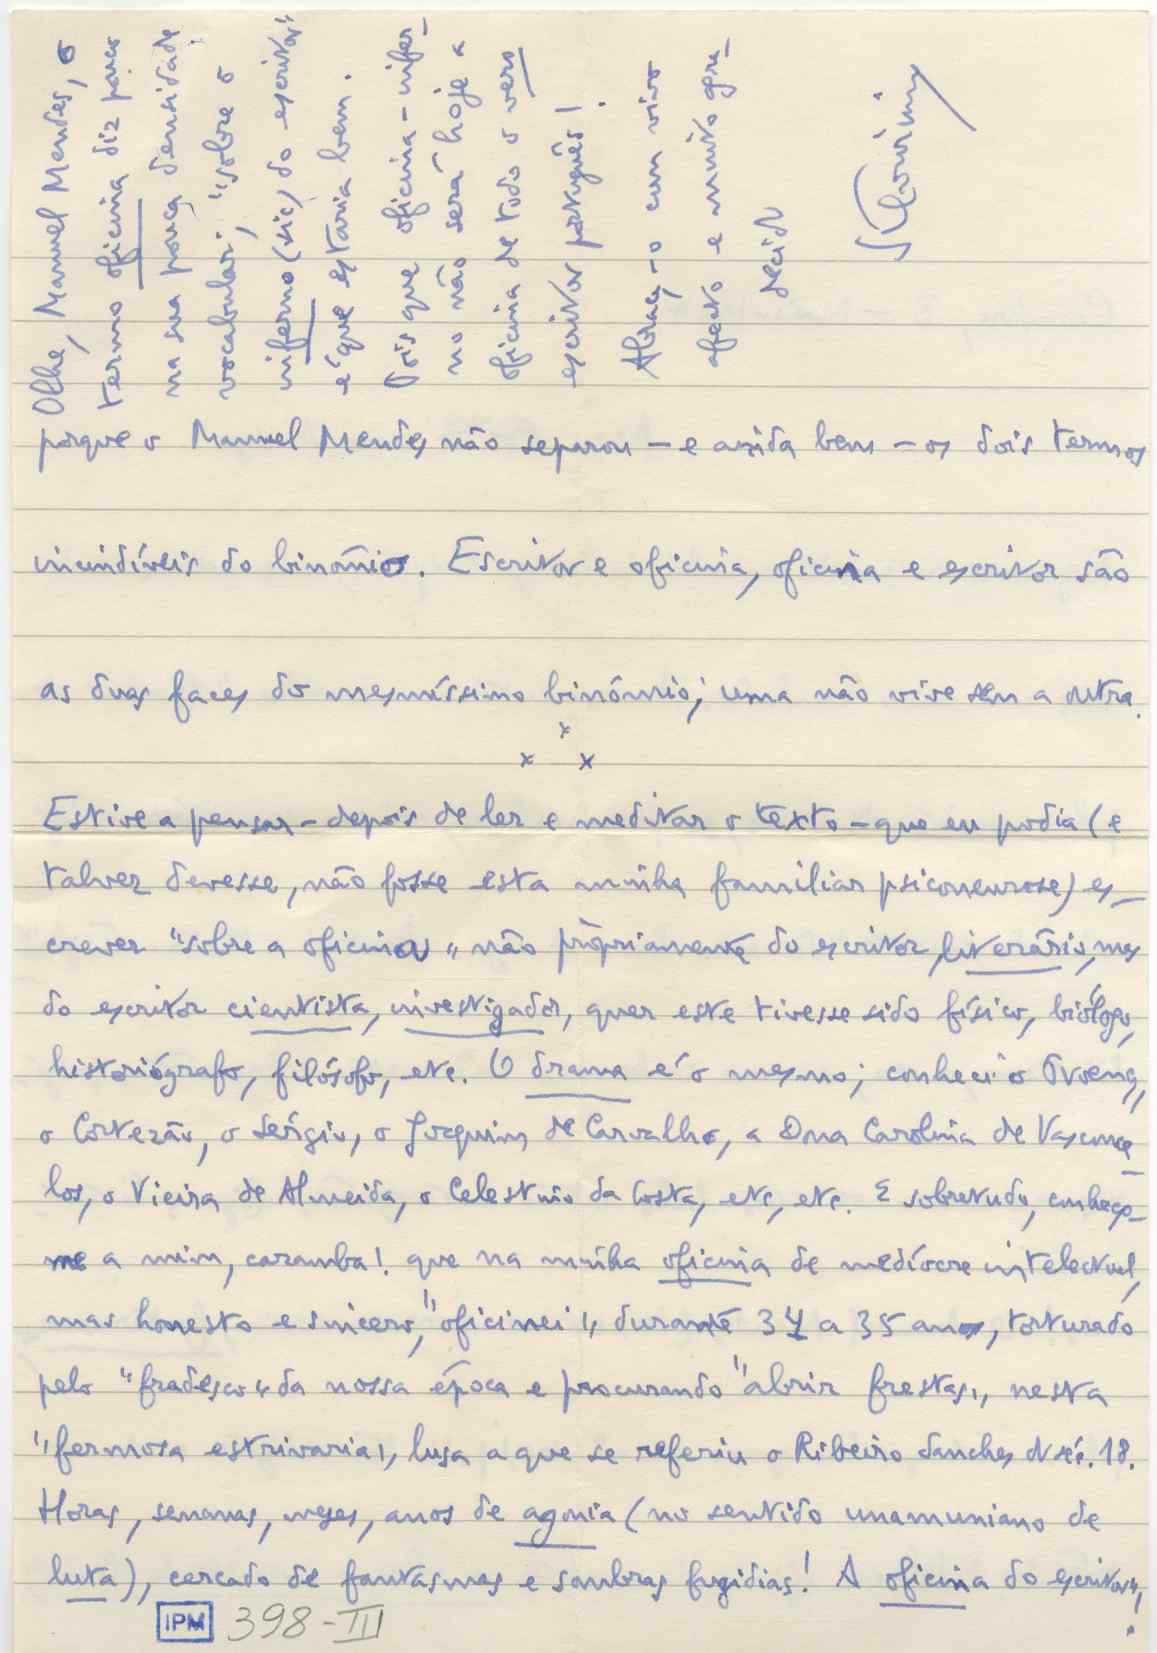 porque o Manuel Mendes não separou — e ainda bem — os dois termos
incindíveis do binômio. Escritor e oficina, oficina e escritor são
as duas faces do mesmíssimo binómio; uma não vive sem a outra.
x
x x
Estive a pensar — depois de ler e meditar o texto — que eu podia (e
talvez devesse, não fosse esta minha familiar psiconeurose) es-
crever "sobre a oficina" não pròpriamente do escritor literário, mas
do escritor cientista, investigador, quer este tivesse sido físico, biólogo,
historiógrafo, filósofo, etc. O drama é o mesmo; conheci o Proença,
o Cortezão, o Sérgio, o Joaquim de Carvalho, a Dona Carolina de Vasconce-
los, o Vieira de Almeida, o Celestino da Costa, etc, etc. E sobretudo, conheço-
me a mim, caramba! que na minha oficina de medíocre intelectual,
mas honesto e sincero, "oficinei" durante 34 a 35 anos, torturado
pelo "fradesco" da nossa época e procurando "abrir frestas", nesta
"fermosa estrivaria", lusa a que se referiu o Ribeiro Sanches no séc. 18.
Horas, semanas, meses, anos de agonia (no sentido unamuniano de
luta), cercado de fantasmas e sombras fugidias! A oficina do escritor"!
Olhe, Manuel Mendes, o
termo oficina diz pouco
na sua pouca densidade
vocabular; "sobre o
inferno (sic) do escritor"
é que estaria bem.
Pois que oficina-infer-
no não será hoje a
oficina de todo o vero
escritor português!
Abraça-o com vivo
afecto e muito agra-
decido
IPM 398-III